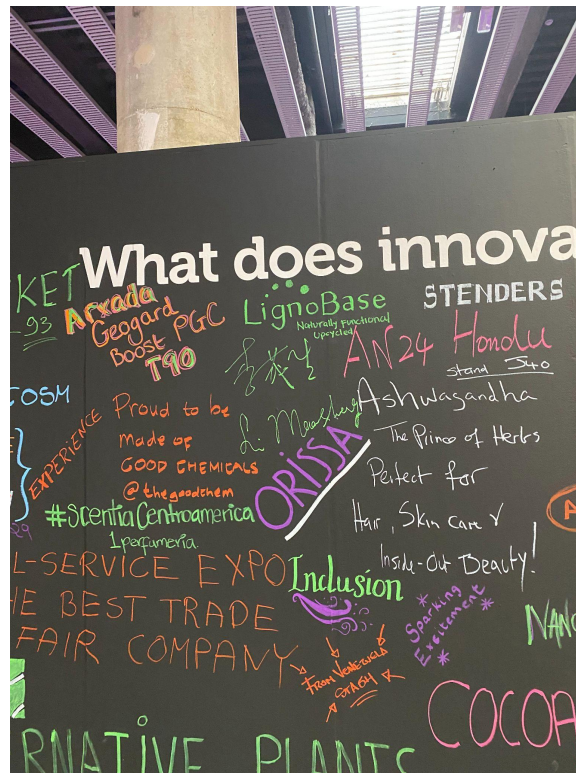 What does innova
KET
93
Arxada
Geogard
Boost PGC
T90
LignoBase
Naturally Functional
Upcycled
STENDERS
AN24 Hondu
stand J40
COSM
EXPERIENCE
Proud to be
made of
GOOD CHEMICALS
@thegoodchem
ORISSA
Ashwagandha
The Prince of Herbs
Perfect for
Hair, Skin care &
Inside-Out Beauty!
#ScentiaCentroamerica
1perfumeria
29
L-SERVICE EXPO
HE BEST TRADE
FAIR COMPANY
Inclusion
Sparking
Excitement
NANO
FROM VENEZUELA
COCOA
RNATIVE PLANTS